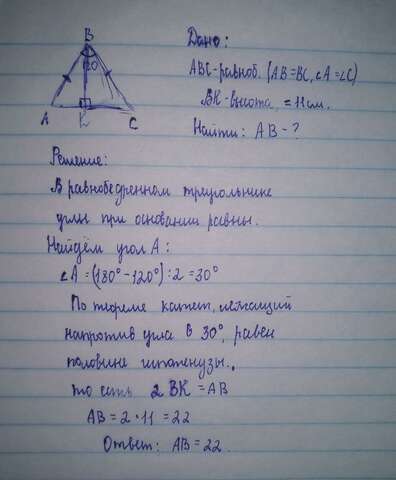 Дано:
В
120
А
К
С
АВС-равноб. (АВ=ВС, ∠А=∠С)
ВК-высота, = 11 см.
Найти: АВ-?
Решение:
В равнобедренном треугольнике
углы при основании равны.
Найдём угол А:
∠А = (180°-120°):2=30°
По теореме катет, лежащий
напротив угла в 30°, равен
половине гипотенузы.
то есть 2 ВК = АВ
АВ = 2·11 = 22
Ответ: АВ = 22.